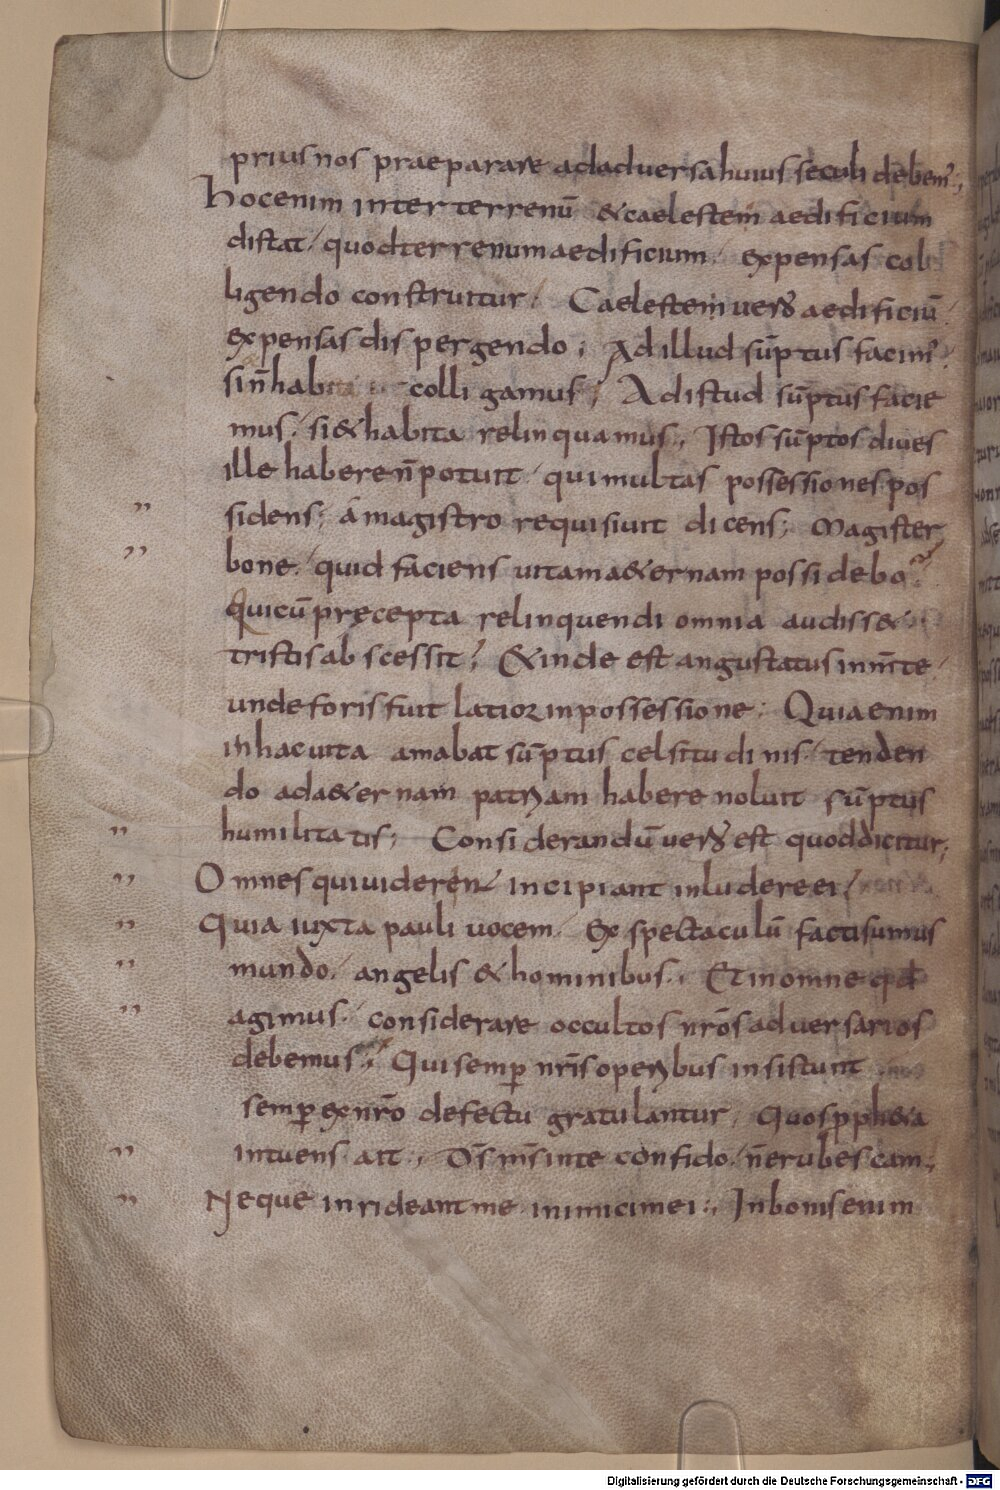 prius nos praeparare ad aduersa huius seculi debem';
Hoc enim inter terrenū & caelestem aedificium
distat, quod terrenum aedificium, expensas col
ligendo construitur, Caelestem uerō aedificiū
expensas dispergendo; Ad illud sūptus facim'
si n̄ hab colligamus; Ad istud sūptus facie
mus, si & habita relinquamus; Istos sūptos diues
ille habere n̄ potuit, qui multas possessiones pos
sidens; á magistro requisiuit dicens; Magister
bone, quid faciens uitam a&ernam possidebo?
Qui cū pręcepta relinquendi omnia audiss&,
tristis abscessit; & inde est angustatus in m̄te,
unde foris fuit latior in possessione; Quia enim
in hac uita amabat sūptus celsitudinis, tenden
do ad a&ernam patriam habere noluit sūptus
humilitatis; Considerandū uerō est quod dicitur;
Omnes qui uideren/ incipiant inludere ei,
Quia iuxta pauli uocem, Ex spectaculū facti sumus
mundo, angelis & hominibus; Et in omne qd
agimus, considerare occultos nrōs aduersarios
debemus; Qui semp nrīs operibus insistunt
semp ex nrō defectu gratulantur, Quos pph&a
intuens ait; Ds̄ ms̄ in te confido, n̄ erubescam;
Neque inrideant me inimici mei; In bonis enim
Digitalisierung gefördert durch die Deutsche Forschungsgemeinschaft - DFG